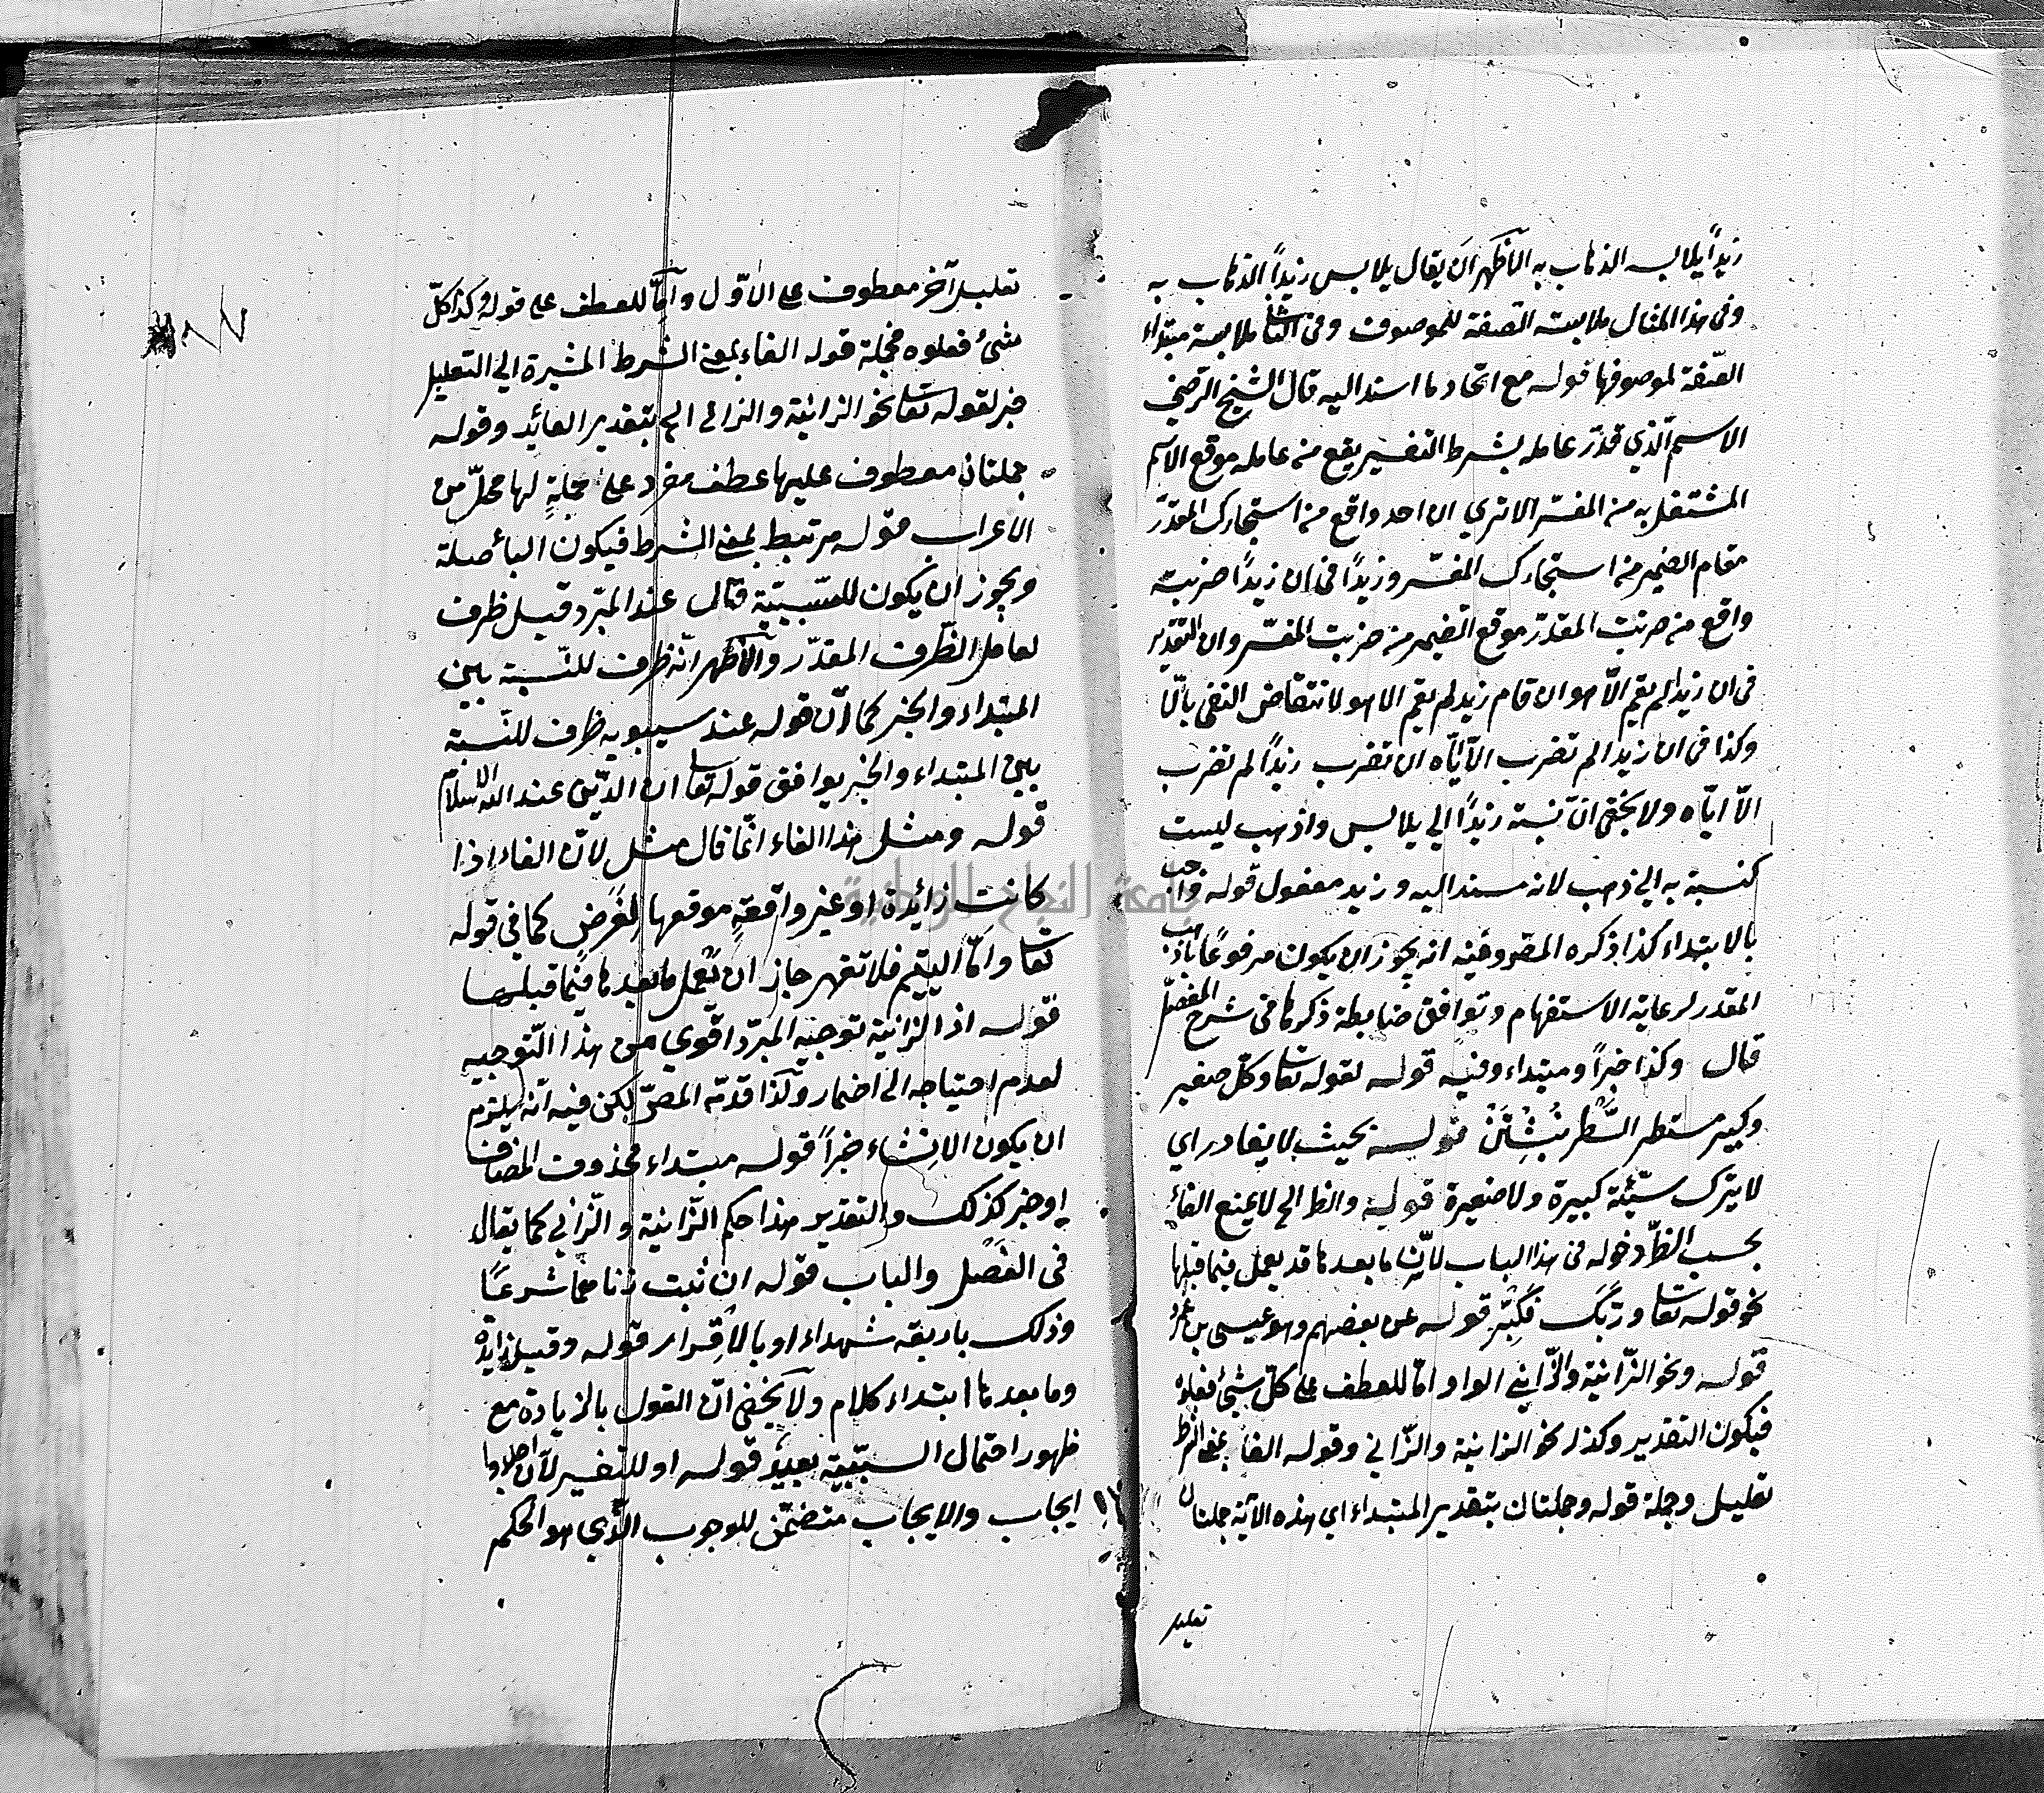 زيداً يلابسه الذهاب به الأظهر ان يقال يلابس زيداً الذهاب به
وفى هذا المثال ملابسة الصفة للموصوف وفى الثانى ملابسة مبتداء
الصّفة لموصوفها قوله مع اتحاد ما اسند اليه قال الشيخ الرضي
الاسم الّذي قدّر عامله بشرط التفسير يقع من عامله موقع الاسم
المشتغل به من المفسّر الا تري ان احد واقع من استجارك المقدّر
مقام الضمير من استجارك المفسّر وزيداً فى ان زيداً ضربته
واقع من ضربت المقدّر موقع الضمير من ضربت المفسّر وان التقدير
فى ان زيد لم يقم الّا هو ان قام زيد لم يقم الا هو لانتقاض النفى بالّا
وكذا فى ان زيدا لم تضرب الّا ايّاه ان تضرب زيداً لم تضرب
الّا ايّاه ولا يخفى انّ نسبة زيداً الي يلابس واذهب ليست
كنسبة به الي ذهب لانه مسند اليه وزيد مفعول قوله فواجب
بالابتداء كذا ذكره المصّ وفيه انه يجوز ان يكون مرفوعاً باذهب
المقدر لرعاية الاستفهام وتوافق ضابطة ذكرها فى شرح المفصّل
قال وكذا خبراً ومبتداء وفيه قوله لقوله تعا وكلّ صغير
وكبير مستطر السَّطْر نبشتن قوله بحيث لا يغادر اي
لا يترك سيّئة كبيرة ولا صغيرة قوله والظ الخ لا يمنع الفاء
بحسب الظّ دخوله فى هذا الباب لانّ ما بعدها قد يعمل فيما قبلها
نحو قوله تعا وربّك فكبّر قوله عن بعضهم وهو عيسى بن عمر
قوله ونحو الزّانية والزّاني الواو امّا للعطف على كلّ شئ فعلوه
فيكون التقدير وكذا نحو الزانية والزّاني وقوله الفاء بمعنى الشرط
تعليل وجملة قوله وجملتان بتقدير المبتداء اي هذه الآية جملتان
تعليل
تعليل آخر معطوف على الاوّل وامّا للعطف على قوله وكذا كلّ
شئ فعلوه فجملة قوله الفاء بمعنى الشرط المشيرة الي التعليل
خبر لقوله تعا نحو الزانية والزاني الخ بتقدير العائد وقوله
جملتان معطوف عليها عطف مفرد على جملةٍ لها محلّ من
الاعراب قوله مرتبط بمعنى الشرط فيكون الباء صلة
ويجوز ان يكون للسّببيّة قال عند المبرّد قيل ظرف
لعامل الظّرف المقدّر والاظهر انّه ظرف للنّسبة بين
المبتداء والخبر كما انّ قوله عند سيبويه ظرف للنّسبة
بين المبتداء والخبر يوافق قوله تعا ان الدّين عند الله الاسلام
قوله ومثل هذا الفاء انّما قال مثل لانّ الفاء اذا
كانت زائدة او غير واقعةٍ موقعها لغرض كما في قوله
تعا وامّا اليتيم فلا تقهر جاز ان يعمل ما بعدها فيما قبلها
قوله اذ الزانية توجيه المبرّد اقوي من هذا التّوجيه
لعدم احتياجه الى اضمار وكذا قدّمه المصّ لكن فيه انّه يلزم
ان يكون الانشاء خبراً قوله مبتداء محذوف المضاف
او خبر كذلك والتقدير هذا حكم الزّانية والزّاني كما يقال
فى الفصل والباب قوله ان ثبت زناهما شرعًا
وذلك باربعة شهداء او بالاقرار قوله وقيل زايدة
وما بعدها ابتداء كلام ولا يخفى انّ القول بالزيادة مع
ظهور احتمال السببيّة بعيد قوله او للتفسير لانّ اجلدوا
ايجاب والايجاب متضمّن للوجوب الّذي هو الحكم
جامعة النجاح الوطنية